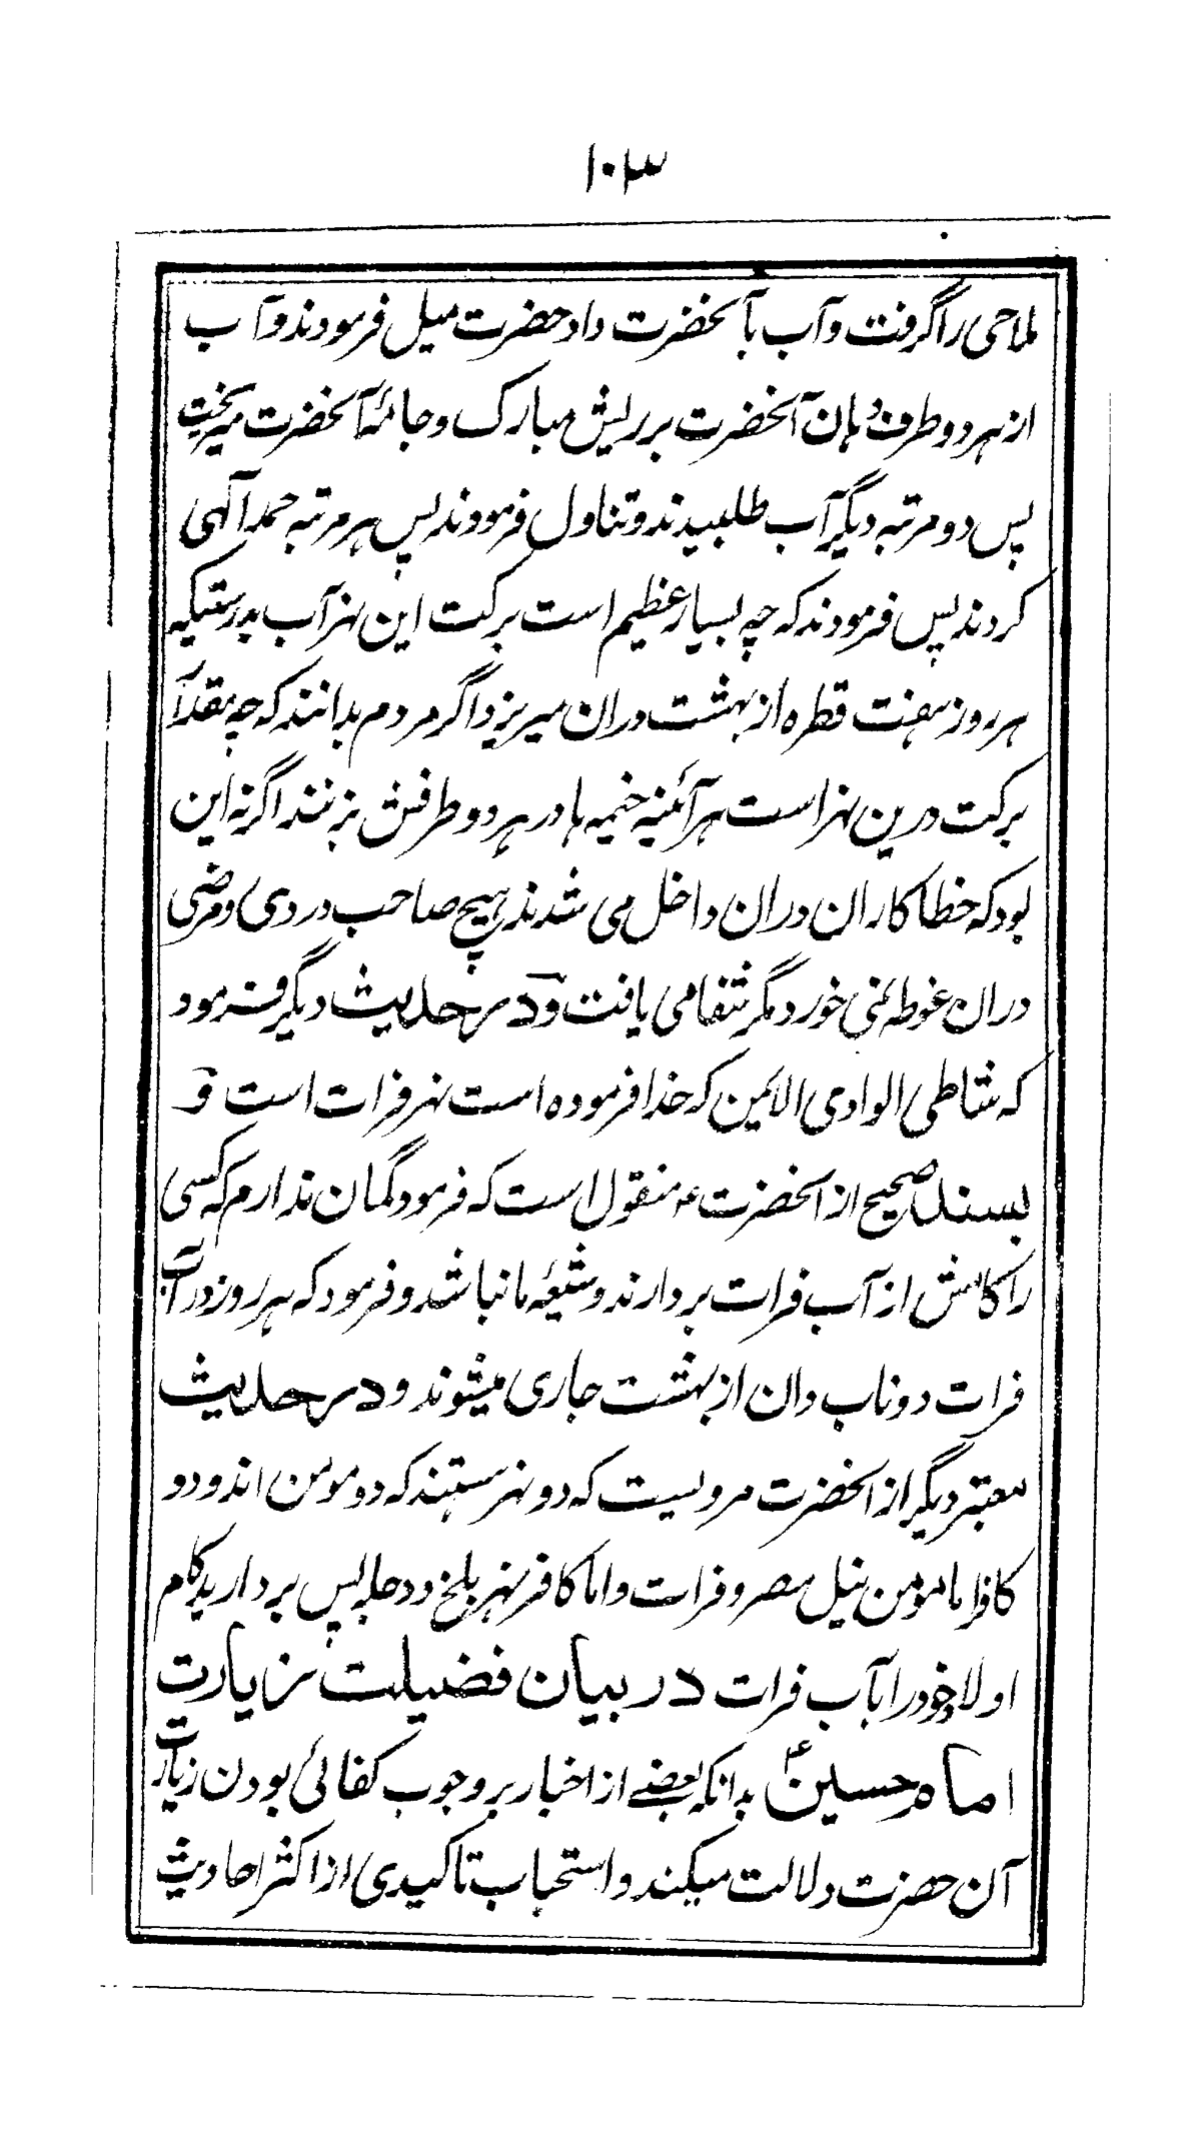 ۱۰۳
ملاحی را گرفت و آب بآنحضرت داد حضرت میل فرمودند و آب
از هر دو طرف دهان آنحضرت بر ریش مبارک و جامهٔ آنحضرت میریخت
پس دو مرتبه دیگر آب طلبیدند و تناول فرمودند پس هر مرتبه حمد الٰهی
کردند پس فرمودند که چه بسیار عظیم است برکت این نهر آب بدرستیکه
هر روز هفت قطره از بهشت دران میریزد اگر مردم بدانند که چه مقدار
برکت درین نهر است هر آئینه خیمه ها در هر دو طرفش بزنند اگر نه این
بود که خطا کاران دران داخل می شدند هیچ صاحب دردی و مرضی
دران غوطه نمی خورد مگر شفا می یافت و در حدیث دیگر فرمود
که شاطی الوادی الایمن که خدا فرموده است نهر فرات است و
بسند صحیح از آنحضرت ع منقول است که فرمود گمان ندارم که کسی
را کامش از آب فرات بردارند و شیعهٔ ما نباشد و فرمود که هر روز در آب
فرات دو ناب دان از بهشت جاری میشوند و در حدیث
معتبر دیگر از آنحضرت مرویست که دو نهر هستند که دو مومن اند و دو
کافر اما مومن نیل مصر و فرات و اما کافر نهر بلخ و دجله پس بردارید کام
اولاد خود را بآب فرات در بیان فضیلت زیارت
امام حسین ع بدانکه بعضے از اخبار بر وجوب کفائی بودن زیارت
آن حضرت دلالت میکند و استحباب تاکیدی از اکثر احادیث